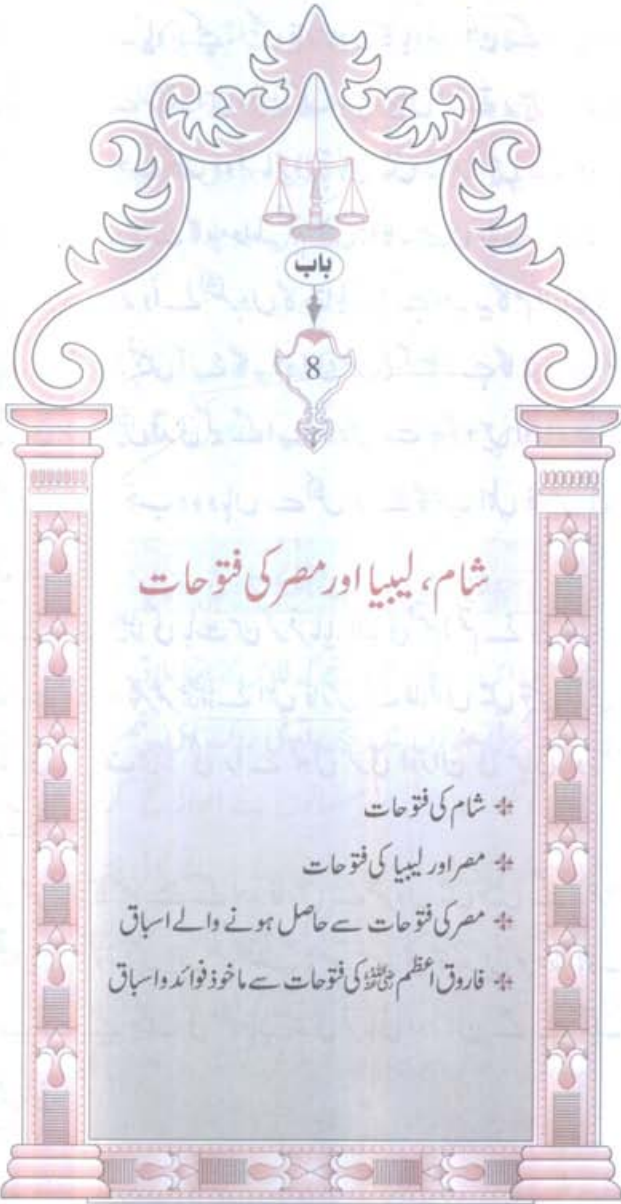 باب
8
شام، لیبیا اور مصر کی فتوحات
شام کی فتوحات
مصر اور لیبیا کی فتوحات
مصر کی فتوحات سے حاصل ہونے والے اسباق
فاروق اعظم رضی اللہ عنہ کی فتوحات سے ماخوذ فوائد و اسباق